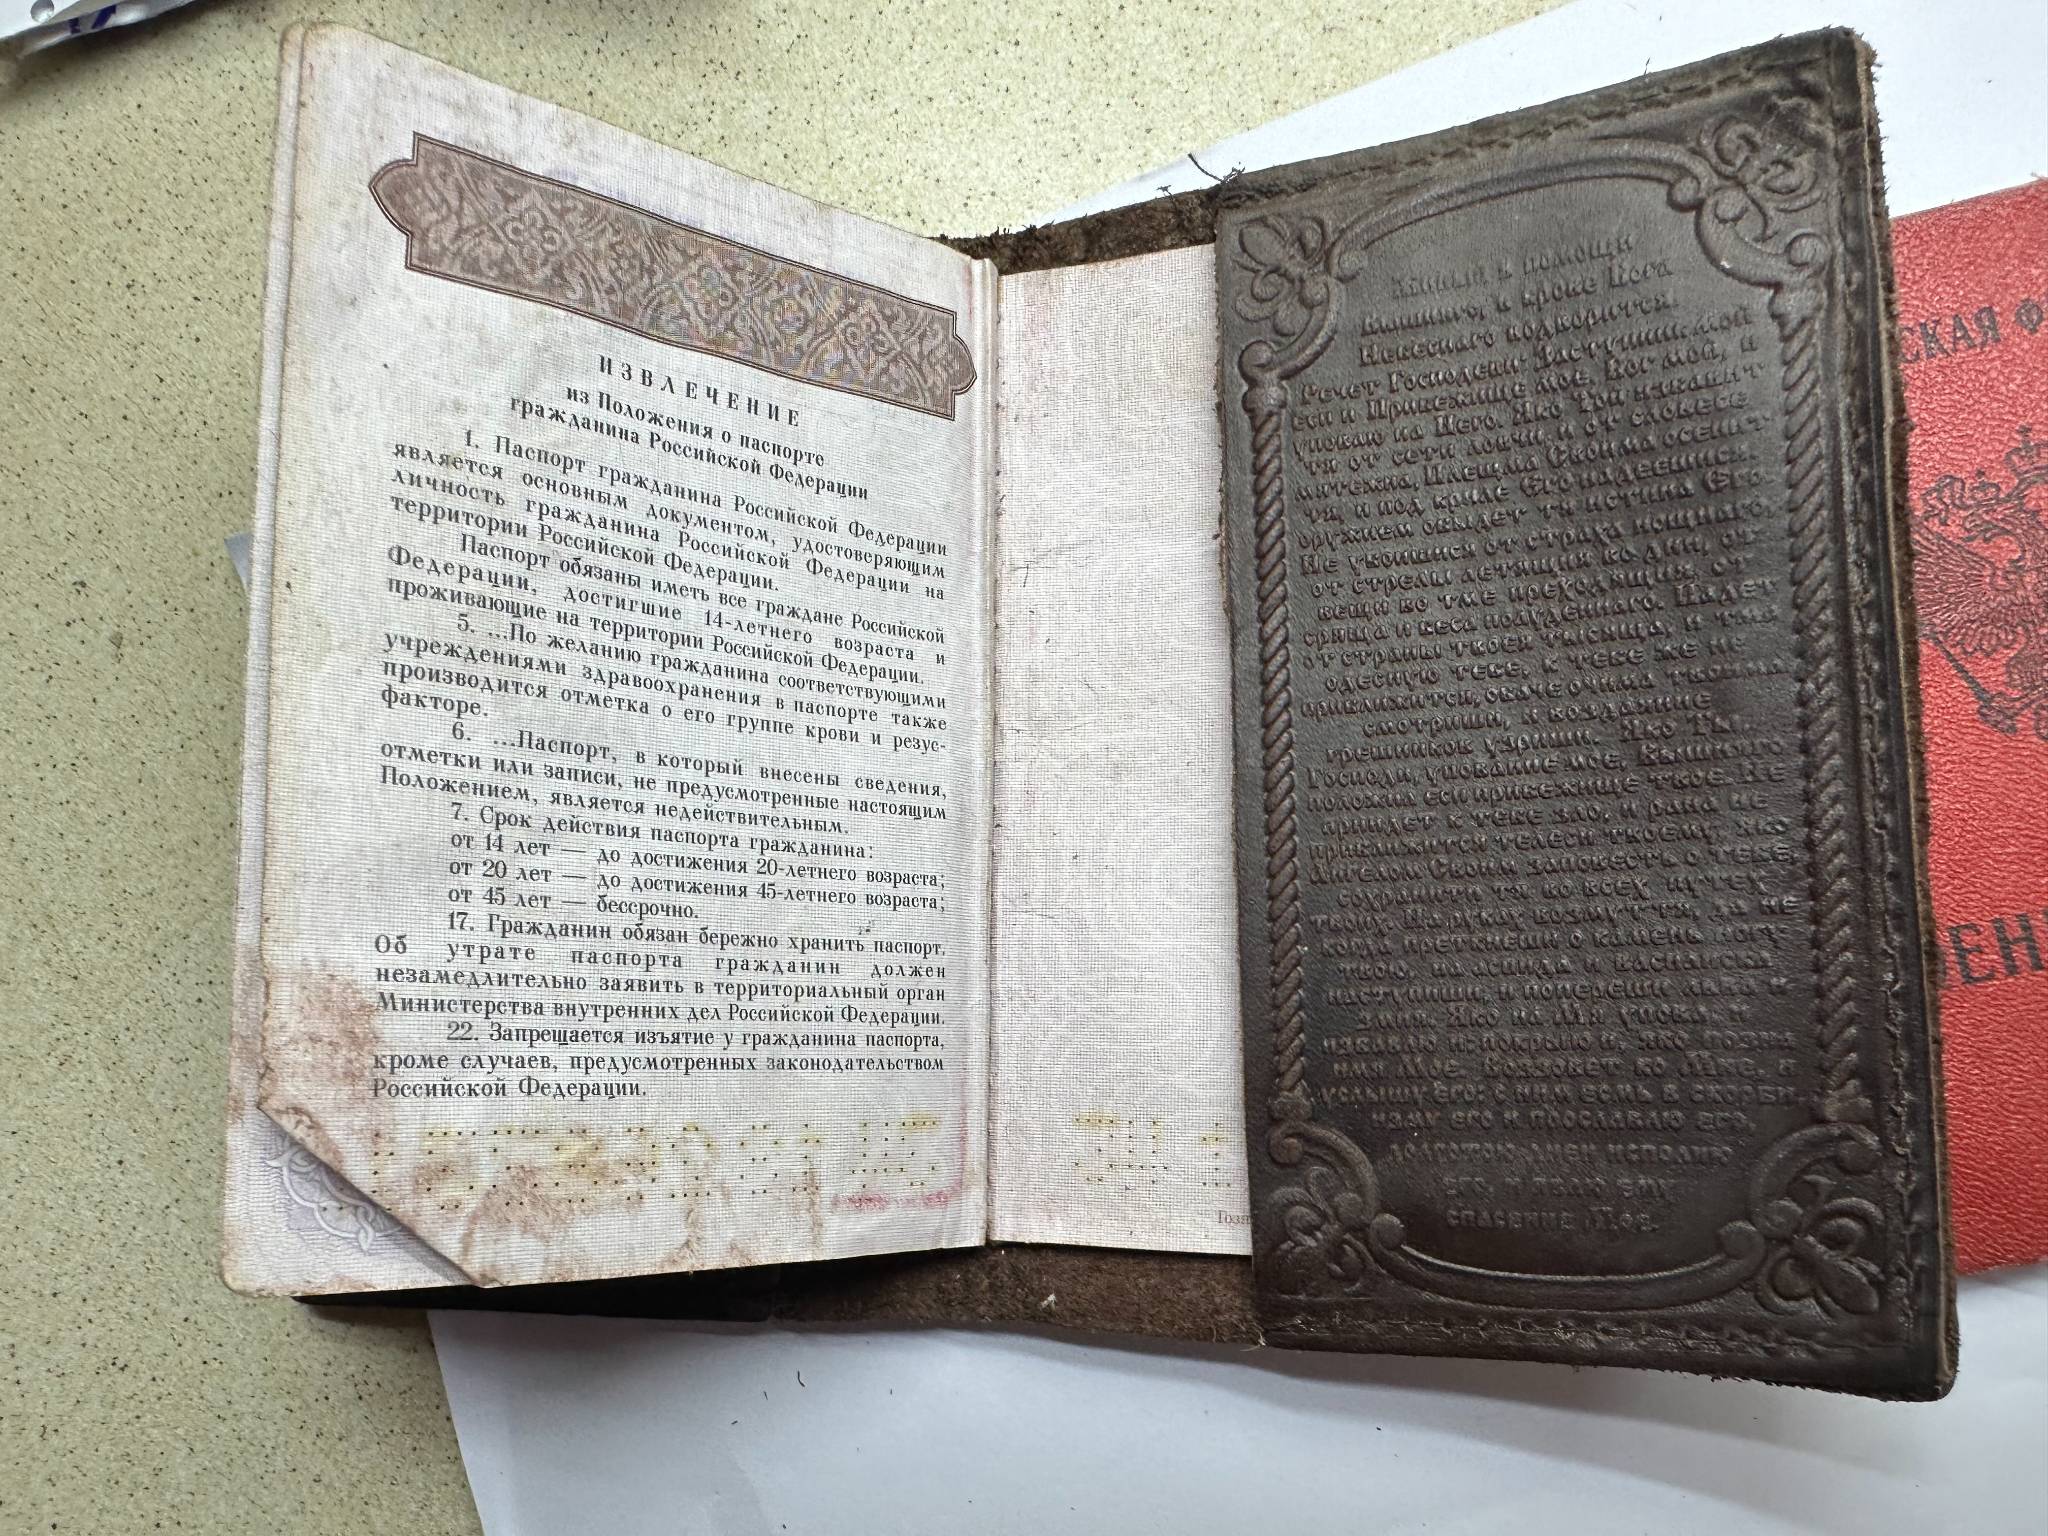 ИЗВЛЕЧЕНИЕ
из Положения о паспорте
гражданина Российской Федерации
1. Паспорт гражданина Российской Федерации
является основным документом, удостоверяющим
личность гражданина Российской Федерации на
территории Российской Федерации.
Паспорт обязаны иметь все граждане Российской
Федерации, достигшие 14-летнего возраста и
проживающие на территории Российской Федерации.
5. ...По желанию гражданина соответствующими
учреждениями здравоохранения в паспорте также
производится отметка о его группе крови и резус-
факторе.
6. ...Паспорт, в который внесены сведения,
отметки или записи, не предусмотренные настоящим
Положением, является недействительным.
7. Срок действия паспорта гражданина:
от 14 лет — до достижения 20-летнего возраста;
от 20 лет — до достижения 45-летнего возраста;
от 45 лет — бессрочно.
17. Гражданин обязан бережно хранить паспорт.
Об утрате паспорта гражданин должен
незамедлительно заявить в территориальный орган
Министерства внутренних дел Российской Федерации.
22. Запрещается изъятие у гражданина паспорта,
кроме случаев, предусмотренных законодательством
Российской Федерации.
Живый в помощи
Вышняго, в крове Бога
Небеснаго водворится.
Речет Господеви: Заступник мой
еси и Прибежище мое, Бог мой, и
уповаю на Него. Яко Той избавит
тя от сети ловчи, и от словесе
мятежна, Плещма Своима осенит
тя, и под криле Его надеешися.
оружием обыдет тя истина Его.
Не убоишися от страха нощнаго,
от стрелы летящия во дни, от
вещи во тме преходящия, от
сряща и беса полуденнаго. Падет
от страны твоея тысяща, и тма
одесную тебе, к тебе же не
приближится, обаче очима твоима
смотриши, и воздаяние
грешников узриши. Яко Ты,
Господи, упование мое, Вышняго
положил еси прибежище твое. Не
приидет к тебе зло, и рана не
приближится телеси твоему, яко
Ангелом Своим заповесть о тебе,
сохранити тя во всех путех
твоих. На руках возмут тя, да не
когда преткнеши о камень ногу
твою, на аспида и василиска
наступиши, и попереши льва и
змия. Яко на Мя упова, и
избавлю и: покрыю и, яко позна
имя Мое. Воззовет ко Мне, и
услышу его: с ним есмь в скорби,
изму его и прославлю его,
долготою дней исполню
его, и явлю ему
спасение Мое.
СКАЯ Ф
ЕН